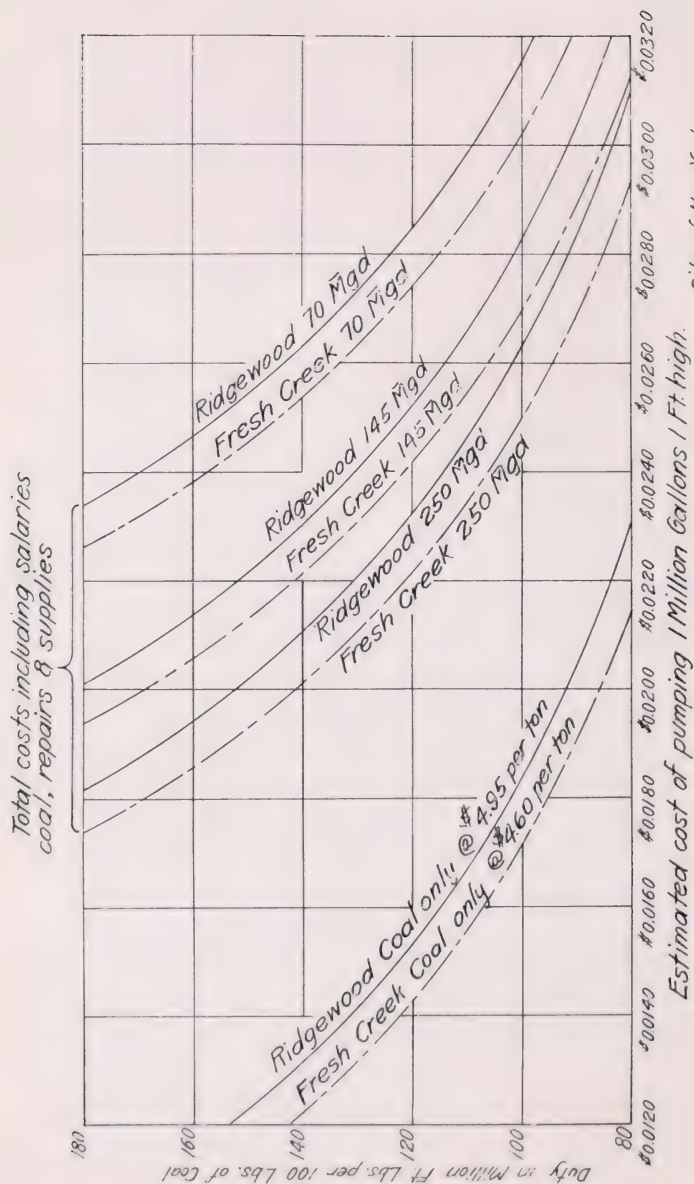 Total costs including salaries
coal, repairs & supplies
Ridgewood 70 Mgd
Fresh Creek 70 Mgd
Ridgewood 145 Mgd
Fresh Creek 145 Mgd
Ridgewood 250 Mgd
Fresh Creek 250 Mgd
Ridgewood Coal only @ $4.95 per ton
Fresh Creek Coal only @ $4.60 per ton
180
160
140
120
100
80
Duty in Million Ft Lbs. per 100 Lbs. of Coal
$0.0120
$0.0140
$0.0160
$0.0180
$0.0200
$0.0220
$0.0240
$0.0260
$0.0280
$0.0300
$0.0320
Estimated cost of pumping 1 Million Gallons 1 Ft. high.